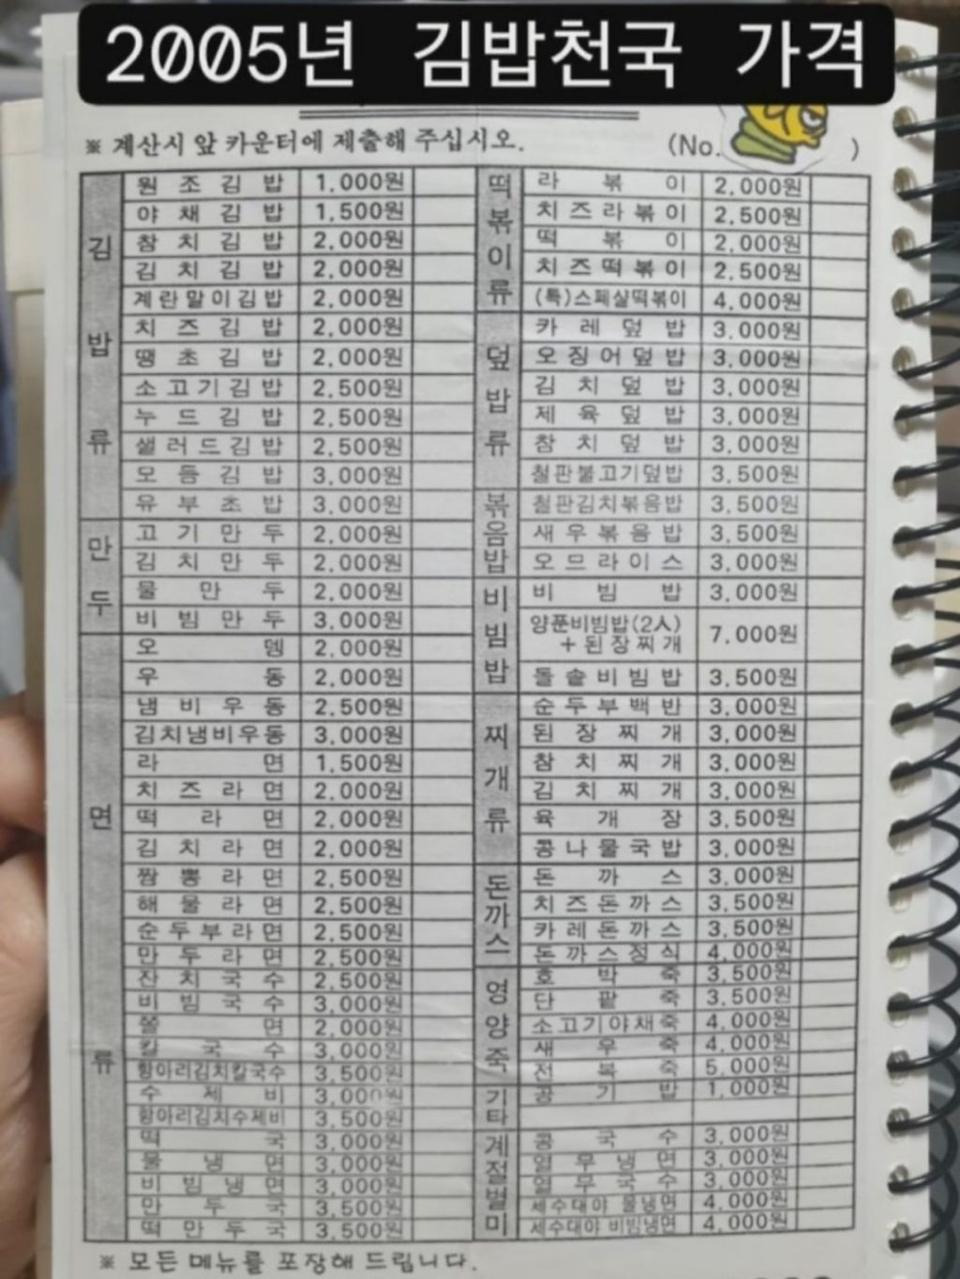 2005년 김밥천국 가격
※ 계산시 앞 카운터에 제출해 주십시오.
(No. )
김밥류
원조김밥 1,000원
야채김밥 1,500원
참치김밥 2,000원
김치김밥 2,000원
계란말이김밥 2,000원
치즈김밥 2,000원
땡초김밥 2,000원
소고기김밥 2,500원
누드김밥 2,500원
샐러드김밥 2,500원
모듬김밥 3,000원
유부초밥 3,000원
만두
고기만두 2,000원
김치만두 2,000원
물만두 2,000원
비빔만두 3,000원
면류
오뎅 2,000원
우동 2,000원
냄비우동 2,500원
김치냄비우동 3,000원
라면 1,500원
치즈라면 2,000원
떡라면 2,000원
김치라면 2,000원
짬뽕라면 2,500원
해물라면 2,500원
순두부라면 2,500원
만두라면 2,500원
잔치국수 2,500원
비빔국수 3,000원
쫄면 2,000원
칼국수 3,000원
항아리김치칼국수 3,500원
수제비 3,000원
항아리김치수제비 3,500원
떡국 3,000원
물냉면 3,000원
비빔냉면 3,000원
만두국 3,500원
떡만두국 3,500원
떡볶이류
라볶이 2,000원
치즈라볶이 2,500원
떡볶이 2,000원
치즈떡볶이 2,500원
(특)스페샬떡볶이 4,000원
덮밥류
카레덮밥 3,000원
오징어덮밥 3,000원
김치덮밥 3,000원
제육덮밥 3,000원
참치덮밥 3,000원
철판불고기덮밥 3,500원
볶음밥
철판김치볶음밥 3,500원
새우볶음밥 3,500원
오므라이스 3,000원
비빔밥
비빔밥 3,000원
양푼비빔밥(2人)
+된장찌개 7,000원
돌솥비빔밥 3,500원
찌개류
순두부백반 3,000원
된장찌개 3,000원
참치찌개 3,000원
김치찌개 3,000원
육개장 3,500원
콩나물국밥 3,000원
돈까스
돈까스 3,000원
치즈돈까스 3,500원
카레돈까스 3,500원
돈까스정식 4,000원
영양죽
호박죽 3,500원
단팥죽 3,500원
소고기야채죽 4,000원
새우죽 4,000원
전복죽 5,000원
기타
공기밥 1,000원
계절별미
콩국수 3,000원
열무냉면 3,000원
열무국수 3,000원
세수대야 물냉면 4,000원
세수대야 비빔냉면 4,000원
※ 모든 메뉴를 포장해 드립니다.